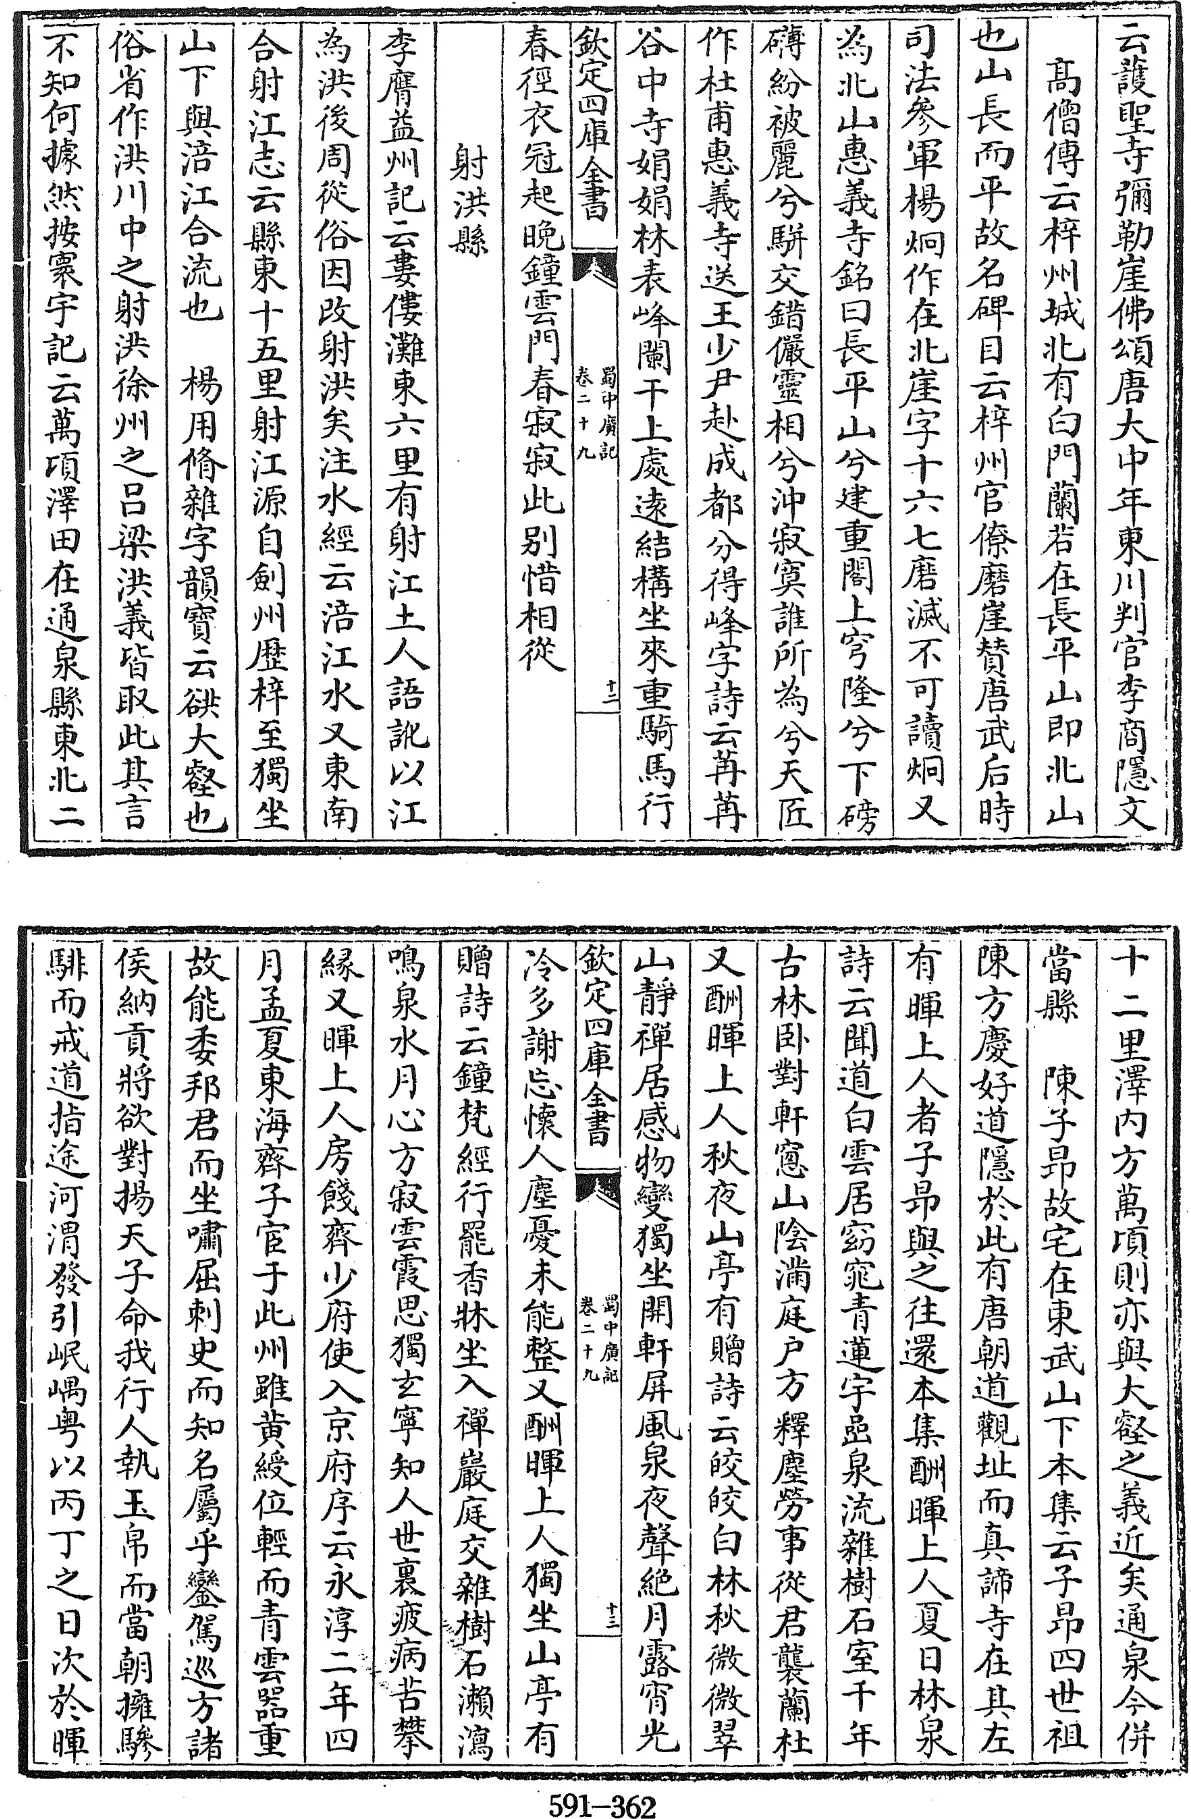 云護聖寺彌勒崖佛頌唐大中年東川判官李商隱文
高僧傳云梓州城北有白門蘭若在長平山即北山
也山長而平故名碑目云梓州官僚磨崖贊唐武后時
司法參軍楊烱作在北崖字十六七磨滅不可讀烱又
為北山惠義寺銘曰長平山兮建重閣上穹隆兮下磅
礴紛被麗兮駢交錯儼靈相兮沖寂寞誰所為兮天匠
作杜甫惠義寺送王少尹赴成都分得峰字詩云苒苒
谷中寺娟娟林表峰闌干上處遠結構坐來重騎馬行
欽定四庫全書
蜀中廣記
卷二十九
十二
春徑衣冠起晚鐘雲門春寂寂此別惜相從
射洪縣
李膺益州記云婁僂灘東六里有射江土人語訛以江
為洪後周從俗因改射洪矣注水經云涪江水又東南
合射江志云縣東十五里射江源自劍州歷梓至獨坐
山下與涪江合流也　楊用脩雜字韻寶云谼大壑也
俗省作洪川中之射洪徐州之呂梁洪義皆取此其言
不知何據然按寰宇記云萬項澤田在通泉縣東北二
十二里澤内方萬頃則亦與大壑之義近矣通泉今併
當縣　陳子昂故宅在東武山下本集云子昂四世祖
陳方慶好道隱於此有唐朝道觀址而真諦寺在其左
有暉上人者子昂與之往還本集酬暉上人夏日林泉
詩云聞道白雲居窈窕青蓮宇嵒泉流雜樹石室千年
古林卧對軒窻山陰滿庭戶方釋塵勞事從君襲蘭杜
又酬暉上人秋夜山亭有贈詩云皎皎白林秋微微翠
山靜禪居感物變獨坐開軒屏風泉夜聲絶月露宵光
欽定四庫全書
蜀中廣記
卷二十九
十三
冷多謝忘懷人塵憂未能整又酬暉上人獨坐山亭有
贈詩云鐘梵經行罷香牀坐入禪巖庭交雜樹石瀨瀉
鳴泉水月心方寂雲霞思獨玄寧知人世裏疲病苦攀
緣又暉上人房餞齊少府使入京府序云永淳二年四
月孟夏東海齊子宦于此州雖黄綬位輕而青雲器重
故能委邦君而坐嘯屈刺史而知名屬乎鑾駕巡方諸
侯納貢將欲對揚天子命我行人執玉帛而當朝擁驂
騑而戒道指途河渭發引岷嵎粤以丙丁之日次於暉
591-362